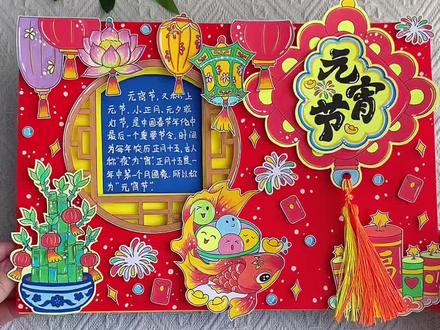 元宵节，又称上
元节、小正月、元夕或
灯节，是中国春节年俗中
最后一个重要节令，时间
为每年农历正月十五，古人
称“夜”为“宵”，正月十五是一
年中第一个月圆夜，所以称
为“元宵节”
元宵节